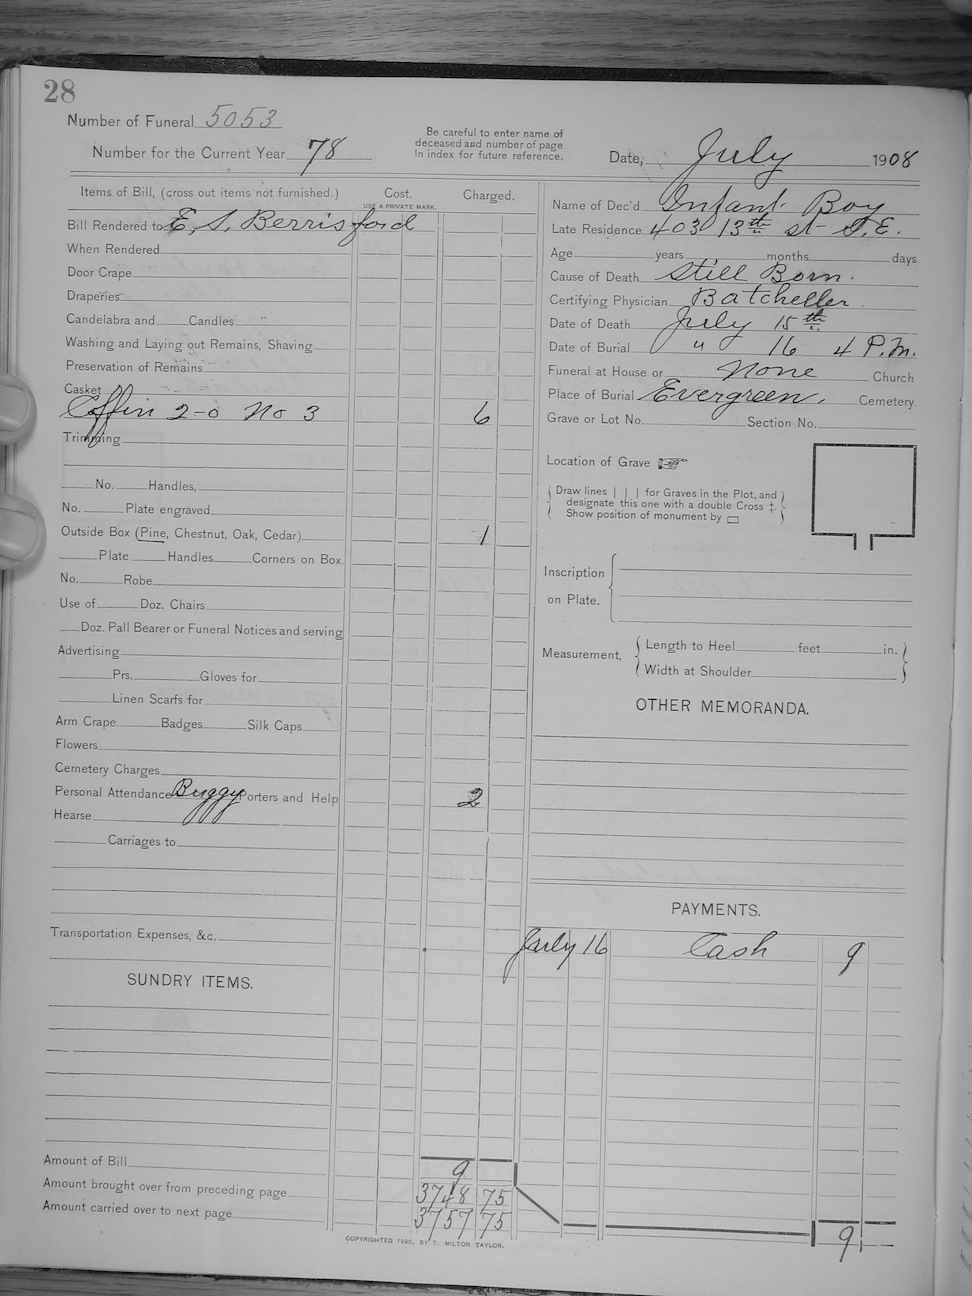 28
Number of Funeral 5053
Number for the Current Year 78
Be careful to enter name of
deceased and number of page
In index for future reference.
Date, July 1908
Items of Bill, (cross out items not furnished.) Cost. Charged.
USE A PRIVATE MARK.
Bill Rendered to E. S. Berrisford
When Rendered
Door Crape
Draperies
Candelabra and Candles
Washing and Laying out Remains, Shaving
Preservation of Remains
Casket
Coffin 2-0 No 3 6
Trimming
No. Handles,
No. Plate engraved
Outside Box (Pine, Chestnut, Oak, Cedar) 1
Plate Handles Corners on Box
No. Robe
Use of Doz. Chairs
Doz. Pall Bearer or Funeral Notices and serving
Advertising
Prs. Gloves for
Linen Scarfs for
Arm Crape Badges Silk Caps
Flowers
Cemetery Charges
Personal Attendance Buggy Porters and Help 2
Hearse
Carriages to
Transportation Expenses, &c.
SUNDRY ITEMS.
Amount of Bill 9
Amount brought over from preceding page 3748 75
Amount carried over to next page 3757 75
COPYRIGHTED 1890, BY T. MILTON TAYLOR.
Name of Dec'd Infant Boy
Late Residence 403 13th st S.E.
Age years months days
Cause of Death Still Born.
Certifying Physician Batcheller
Date of Death July 15th
Date of Burial " 16 4 P.M.
Funeral at House or None Church
Place of Burial Evergreen. Cemetery
Grave or Lot No. Section No.
Location of Grave
Draw lines | | | for Graves in the Plot, and
designate this one with a double Cross ‡.
Show position of monument by ▭
Inscription
on Plate.
Measurement, Length to Heel feet in.
Width at Shoulder
OTHER MEMORANDA.
PAYMENTS.
July 16 Cash 9
9